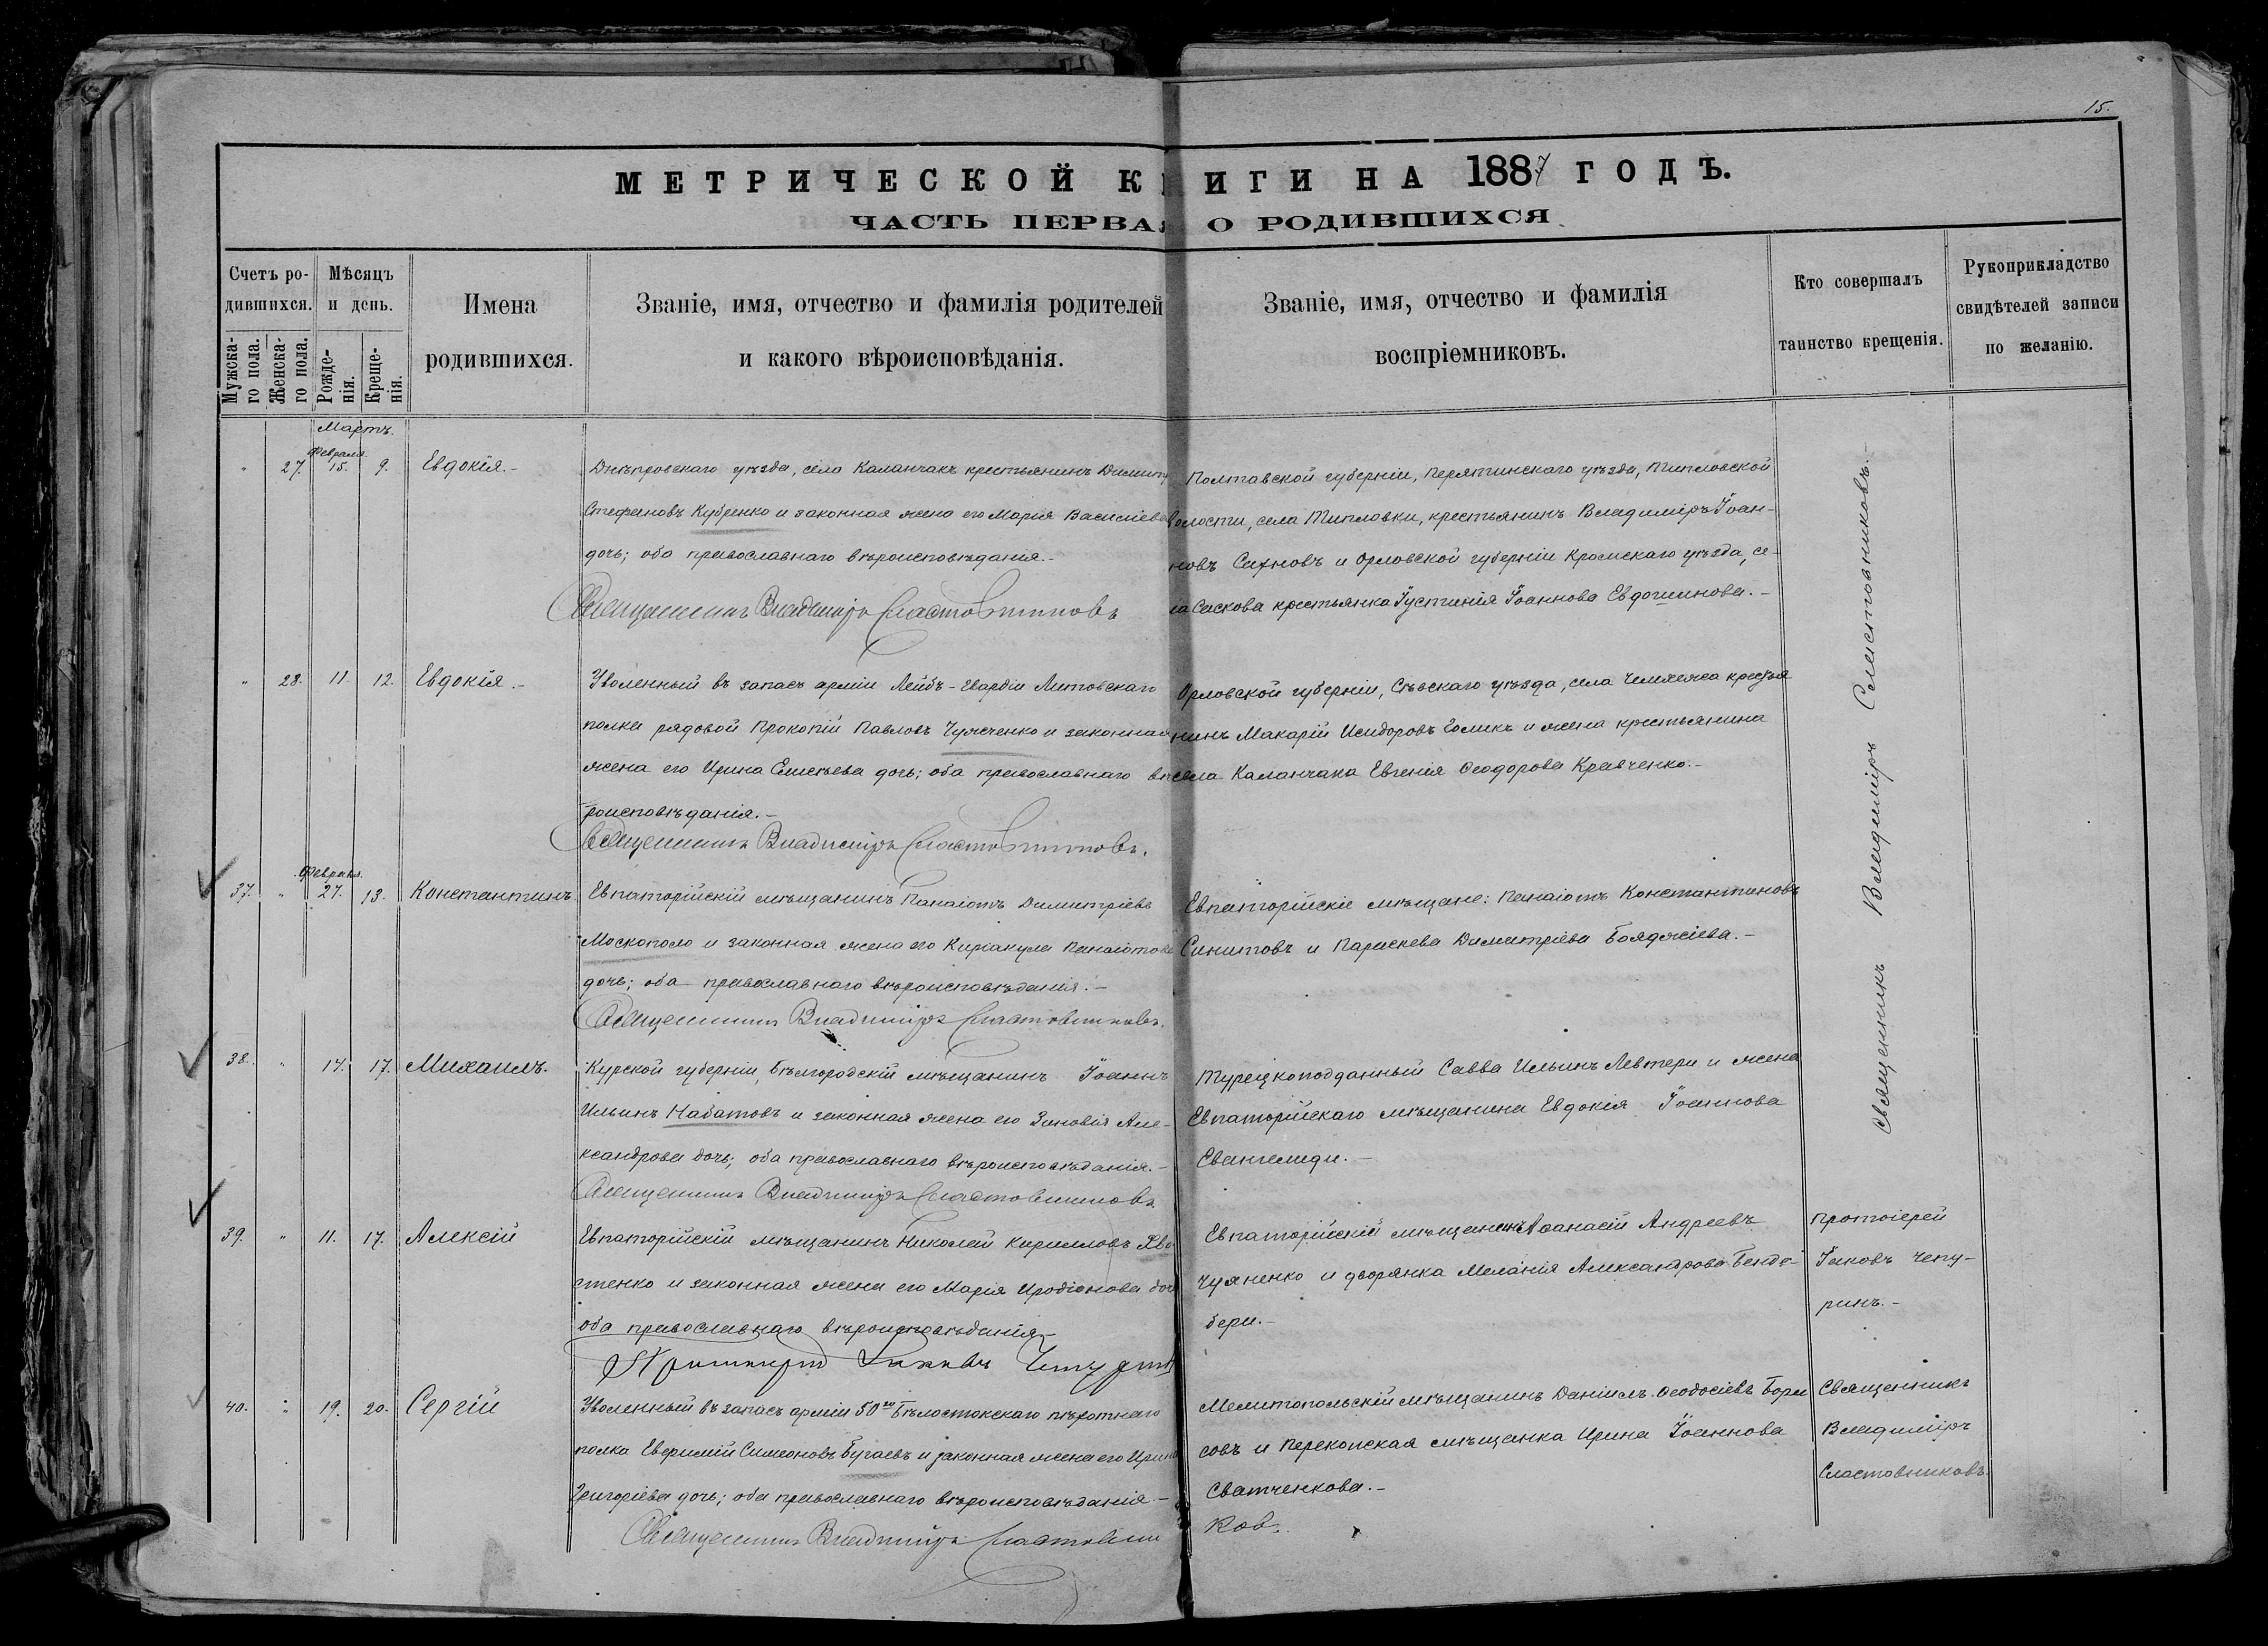 15.
МЕТРИЧЕСКОЙ К ИГИ НА 1887 ГОДЪ.
ЧАСТЬ ПЕРВАЯ О РОДИВШИХСЯ
Счетъ ро-
дившихся.
Мужска-
го пола.
Женска-
го пола.
Мѣсяцъ
и день.
Рожде-
нія.
Креще-
нія.
Имена
родившихся.
Званіе, имя, отчество и фамилія родителей
и какого вѣроисповѣданія.
Званіе, имя, отчество и фамилія
воспріемниковъ.
Кто совершалъ
таинство крещенія.
Рукоприкладство
свидѣтелей записи
по желанію.
Мартъ.
Февраля
" 27. 15. 9. Евдокія.-
Днѣпровскаго уѣзда, село Каланчакъ крестьянинъ Димит
Стефановъ Кубренко и законная жена его Марія Василіева
дочь; оба православнаго вѣроисповѣданія.-
Священникъ Владиміръ Сластовниковъ
Полтавской губерніи, Пирятинскаго уѣзда,
волости, села крестьянинъ Владиміръ Іоан-
новъ Сахновъ и Орловской губерніи Кромскаго уѣзда, се-
ла Саскова крестьянка Іустинія Іоаннова Евдошинова.-
" 28. 11. 12. Евдокія.-
Уволенный въ запасъ арміи Лейбъ-Гвардіи Литовскаго
полка рядовой Прокопій Павловъ Чумченко и законная
жена его Ирина Елисеева дочь; оба православнаго вѣ
роисповѣданія.-
Священникъ Владиміръ Сластовниковъ.
Орловской губерніи, Сѣвскаго уѣзда, села крестья
нинъ Макарій Исидоровъ Голикъ и жена крестьянина
села Каланчака Евгенія Ѳеодорова Кравченко.-
Февраля.
37. " 27. 13. Константинъ
Евпаторійскій мѣщанинъ Панаіотъ Димитріевъ
Москополо и законная жена его Киріакула Панаіотова
дочь; оба православнаго вѣроисповѣданія.-
Священникъ Владиміръ Сластовниковъ.
Евпаторійскіе мѣщане: Панаіотъ Константиновъ
Синитовъ и Параскева Димитріева Бояджіева.-
Священникъ Владиміръ Сластовниковъ.-
38. " 14. 17. Михаилъ.
Курской губерніи, Бѣлгородскій мѣщанинъ Іоаннъ
Ильинъ Набатовъ и законная жена его Зиновія Але-
ксандрова дочь; оба православнаго вѣроисповѣданія.-
Священникъ Владиміръ Сластовниковъ
Турецкоподданный Савва Ильинъ Левтери и жена
Евпаторійскаго мѣщанина Евдокія Іоаннова
Свангелиди.-
39. " 11. 17. Алексій
Евпаторійскій мѣщанинъ Николай Кирилловъ
тенко и законная жена его Марія Иродіонова доч
оба православнаго вѣроисповѣданія
Протоіерей Іаковъ Чепурин
Евпаторійскій мѣщанинъ Аѳанасій Андреевъ
Чуяненко и дворянка Меланія Александрова Бенде-
бери.-
Протоіерей
Іаковъ Чепу-
ринъ.-
40. " 19. 20. Сергій
Уволенный въ запасъ арміи 50го Бѣлостокскаго пѣхотнаго
полка Евфимій Симеоновъ Бугаевъ и законная жена его Ирина
Григоріева дочь; оба православнаго вѣроисповѣданія.-
Священникъ Владиміръ Сластовни
Мелитопольскій мѣщанинъ Даніилъ Ѳеодосіевъ Бори
совъ и Перекопская мѣщанка Ирина Іоаннова
Сватченкова.-
ковъ.
Священникъ
Владиміръ
Сластовниковъ.